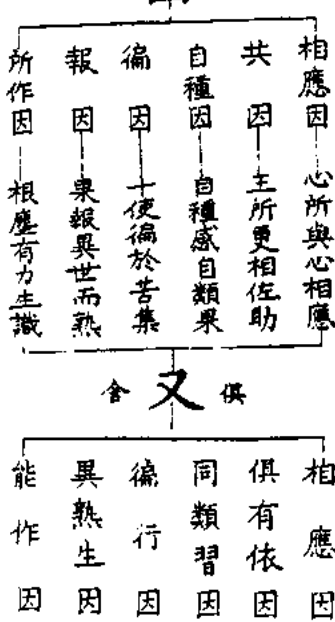 相應因—心所與心相應
共因—王所更相佐助
自種因—自種感自類果
徧因—十使徧於苦集
報因—果報異世而熟
所作因—根塵有力生識
俱又含
相應因
俱有依因
同類習因
徧行因
異熟生因
能作因